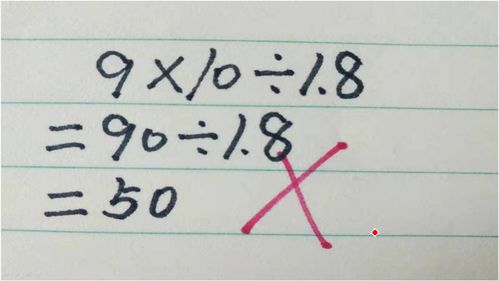 9×10÷1.8
=90÷1.8
=50